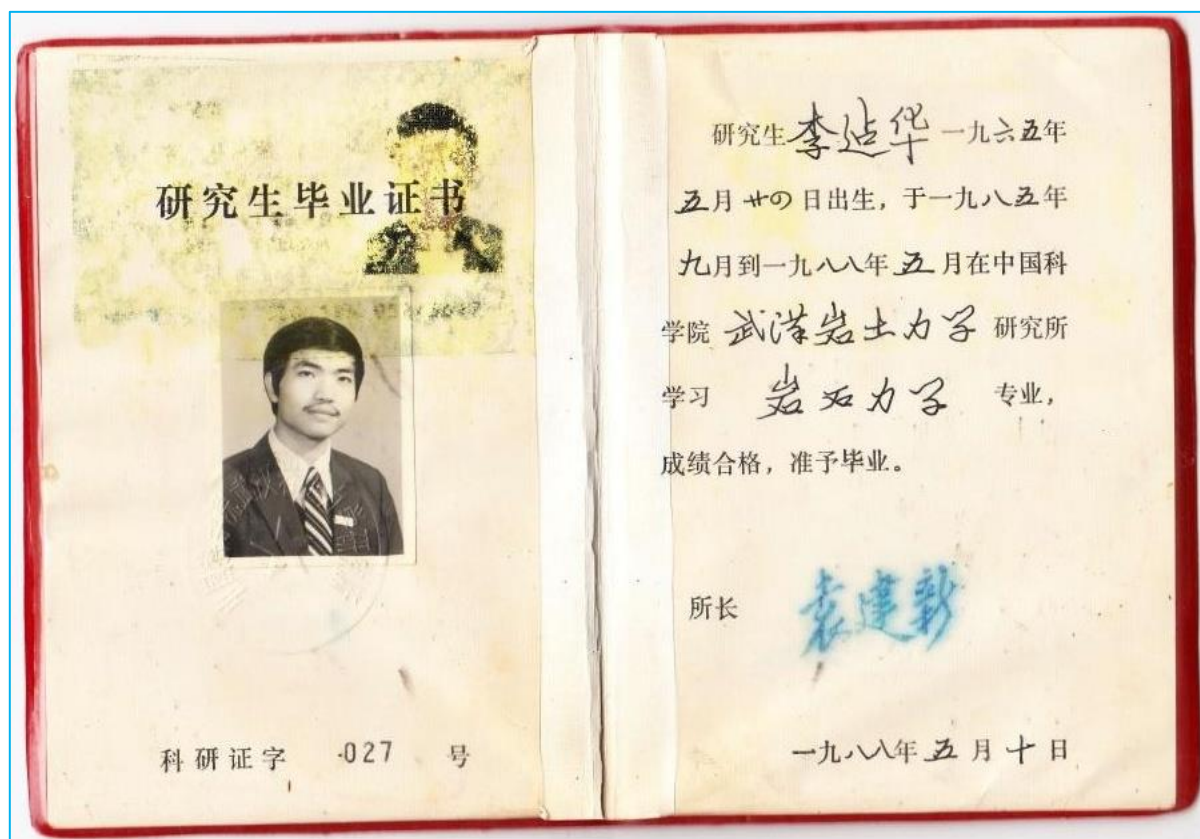 研究生毕业证书
科研证字 027 号
研究生 李造华 一九六五年
五月廿の日出生，于一九八五年
九月到一九八八年五月在中国科
学院 武汉岩土力学 研究所
学习 岩石力学 专业，
成绩合格，准予毕业。
所长 袁建新
一九八八年五月十日